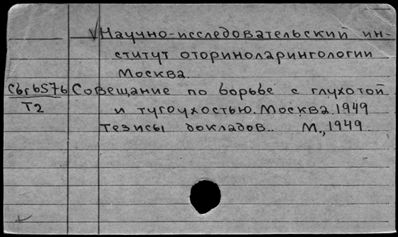 Научно-исследовательский ин-
ститут оториноларингологии
Москва.
Сбг657б Совещание по борьбе с глухотой
Т2 и тугоухостью. Москва. 1949
Тезисы докладов.. М., 1949.